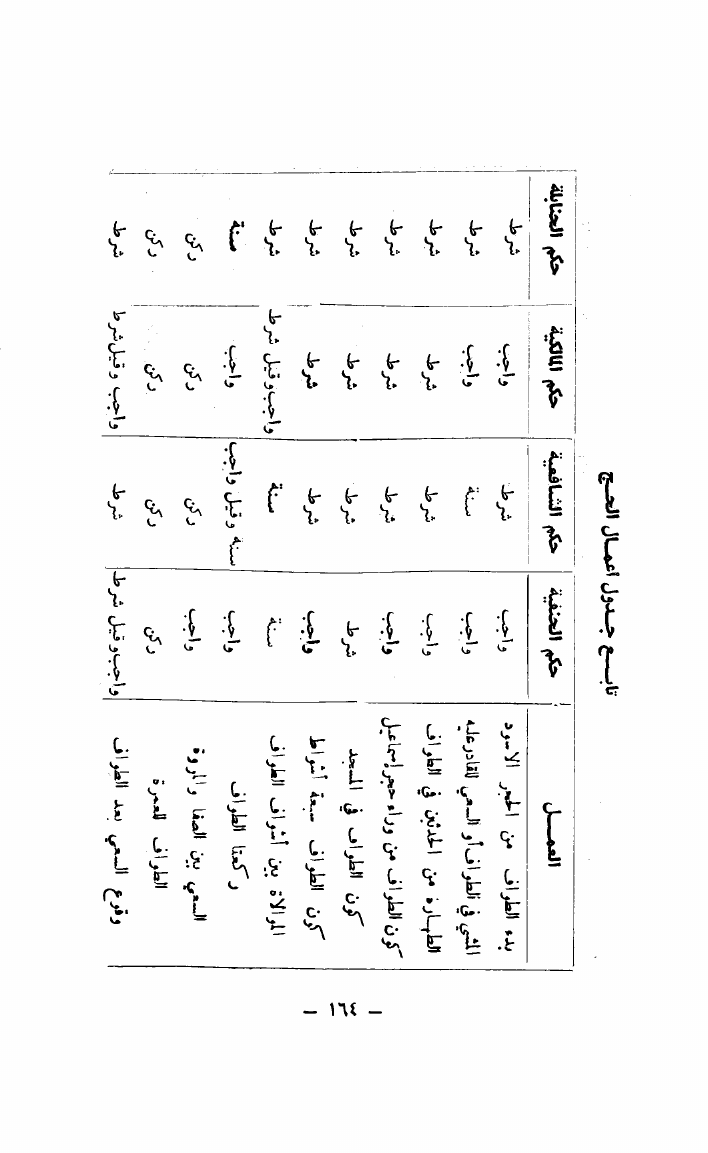 تابع جدول اعمال الحج
العمل حكم الحنفية حكم الشافعية حكم المالكية حكم الحنابلة
بدء الطواف من الحجر الاسود واجب شرط واجب شرط
المشي في الطواف أو السعي للقادر عليه واجب سنة واجب شرط
الطهارة من الحدثين في الطواف واجب شرط شرط شرط
كون الطواف من وراء حجر إسماعيل واجب شرط شرط شرط
كون الطواف في المسجد شرط شرط شرط شرط
كون الطواف سبعة أشواط واجب شرط شرط شرط
الموالاة بين أشواف الطواف سنة سنة واجب وقيل شرط شرط
ركعتا الطواف واجب سنة وقيل واجب واجب سنة
السعي بين الصفا والمروة واجب ركن ركن ركن
الطواف للعمرة ركن ركن ركن ركن
وقوع السعي بعد الطواف واجب وقيل شرط شرط واجب وقيل شرط شرط
– ١٦٤ –